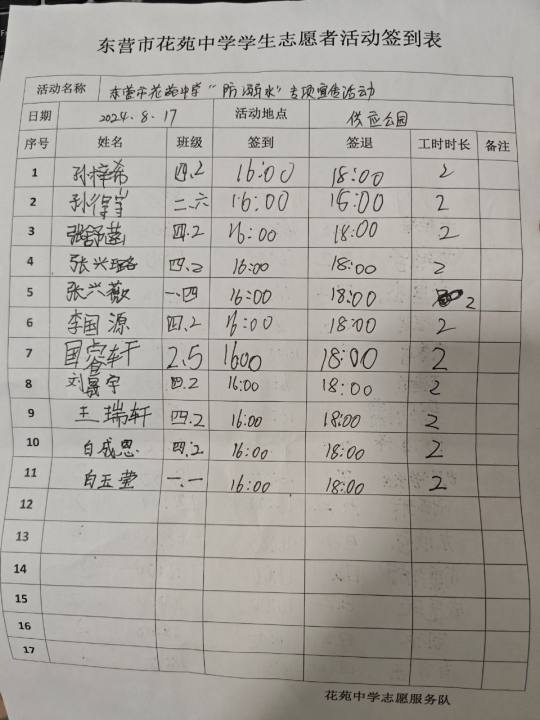 东营市花苑中学学生志愿者活动签到表
活动名称 东营市花苑中学“防溺水”专项宣传活动
日期 2024.8.17 活动地点 公园
序号 姓名 班级 签到 签退 工时时长 备注
1 孙梓希 四.2 16:00 18:00 2
2 孙 二.六 16:00 18:00 2
3 张舒菡 四.2 16:00 18:00 2
4 张兴璐 四.2 16:00 18:00 2
5 张兴薇 一.四 16:00 18:00 2
6 李国源 四.2 16:00 18:00 2
7 轩 2.5 1600 18:00 2
8 刘晟宇 四.2 16:00 18:00 2
9 王瑞轩 四.2 16:00 18:00 2
10 白成恩 四.2 16:00 18:00 2
11 白玉莹 一.一 16:00 18:00 2
12
13
14
15
16
17
花苑中学志愿服务队